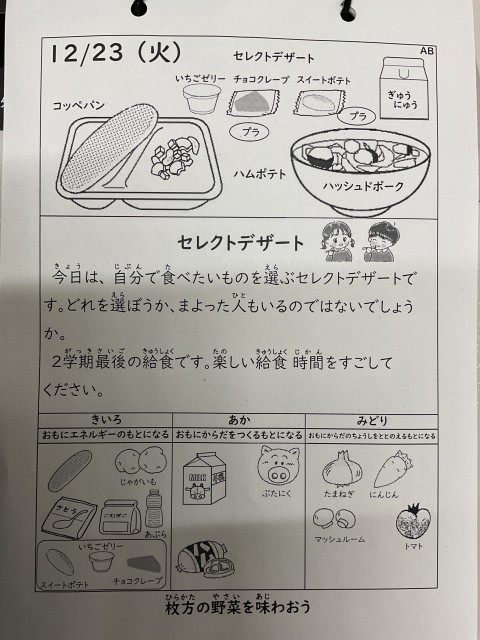 12/23（火）
セレクトデザート
AB
いちごゼリー チョコクレープ スイートポテト
ぎゅうにゅう
プラ
プラ
コッペパン
ハムポテト
ハッシュドポーク
セレクトデザート
今日は、自分で食べたいものを選ぶセレクトデザートで
す。どれを選ぼうか、まよった人もいるのではないでしょう
か。
２学期最後の給食です。楽しい給食時間をすごして
ください。
きいろ あか みどり
おもにエネルギーのもとになる おもにからだをつくるもとになる おもにからだのちょうしをととのえるもとになる
じゃがいも
さとう
こむぎこ
あぶら
いちごゼリー
スイートポテト
チョコクレープ
MILK
ぶたにく
たまねぎ
にんじん
マッシュルーム
トマト
枚方の野菜を味わおう